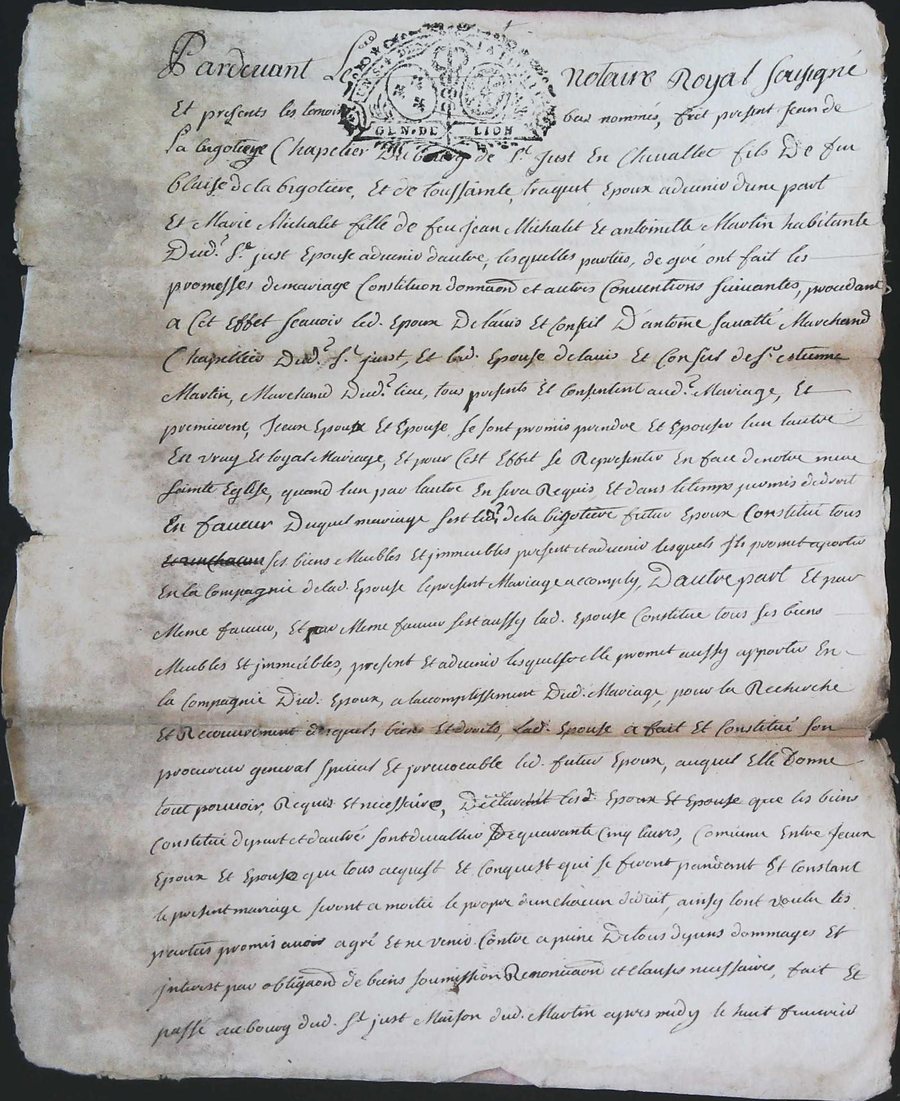 Pardevant Le Notaire Royal sousigné
Et presents les temoins bas nommés, fut present Jean de
La bigotiere Chapelier Du bourg de St Just En Chevallet fils De feu
blaise de la bigotiere, Et de toussainte traquet Epoux advenir dune part
Et Marie Michalet fille de feu Jean Michalet Et antoinette Martin habitante
Dud. St. just Epouse advenir dautre, lesquelles parties, de gré ont fait les
promesses de mariage Constituon donnaon et autres Conventions suivantes, procedant
a Cet Effet scavoir led. Epoux De lavis Et Conseil D'antoine Marchand
Chapellier Dud. St. just, Et lad. Epouse de lavis Et Conseil de Sr. estienne
Martin, Marchand Dud. lieu, tous presents Et Consentent aud. Mariage, Et
premierent, Iceux Epoux Et Epouse se sont promis prendre Et Epouser lun lautre
En vray Et loyal Mariage, Et pour Cest Effet se Representer En face de notre mere
sainte Eglise, quand lun par lautre En sera Requis, Et dans le temps permis de droit
En faveur Duquel mariage sest led. de la bigotiere futur Epoux Constitué tous
et un chacun ses biens Meubles Et jmmeubles present et advenir lesquels Ils promet aporter
En la Compagnie de lad. Epouse le present Mariage accomply, D'autre part Et par
Meme faveur, Et par Meme faveur sest aussy lad. Epouse Constitué tous ses biens
Meubles Et jmmeubles, present Et advenir lesquels elle promet aussy apporter En
la Compagnie Dud. Epoux, a laccomplissement Dud. Mariage, pour la Recherche
Et Recouvrement desquels biens Et droits, Lad. Epouse a fait Et Constitué son
procureur general special Et jrrevocable led. futur Epoux, auquel Elle Donne
tout pouvoir, Requis Et necessaire, Declarant lesd. Epoux Et Epouse que les biens
Constitué depart et dautre sont de valleur De quarante Cinq livres, Convenu Entre jceux
Epoux Et Epouse que tous acquest Et Conquest qui se feront pandent Et Constant
le present mariage seront a moitié le propre dun chacun deux, ainsy lont voulu les
parties promis avoir a gré Et ne venir Contre a peine De tous depens dommages Et
jnterest par obligaon de biens soumission Renonciaon et Clauses necessaires, fait Et
passé au bourg dud. St. just Maison dud. Martin apres midy le huit fevrier
GEN. DE LION